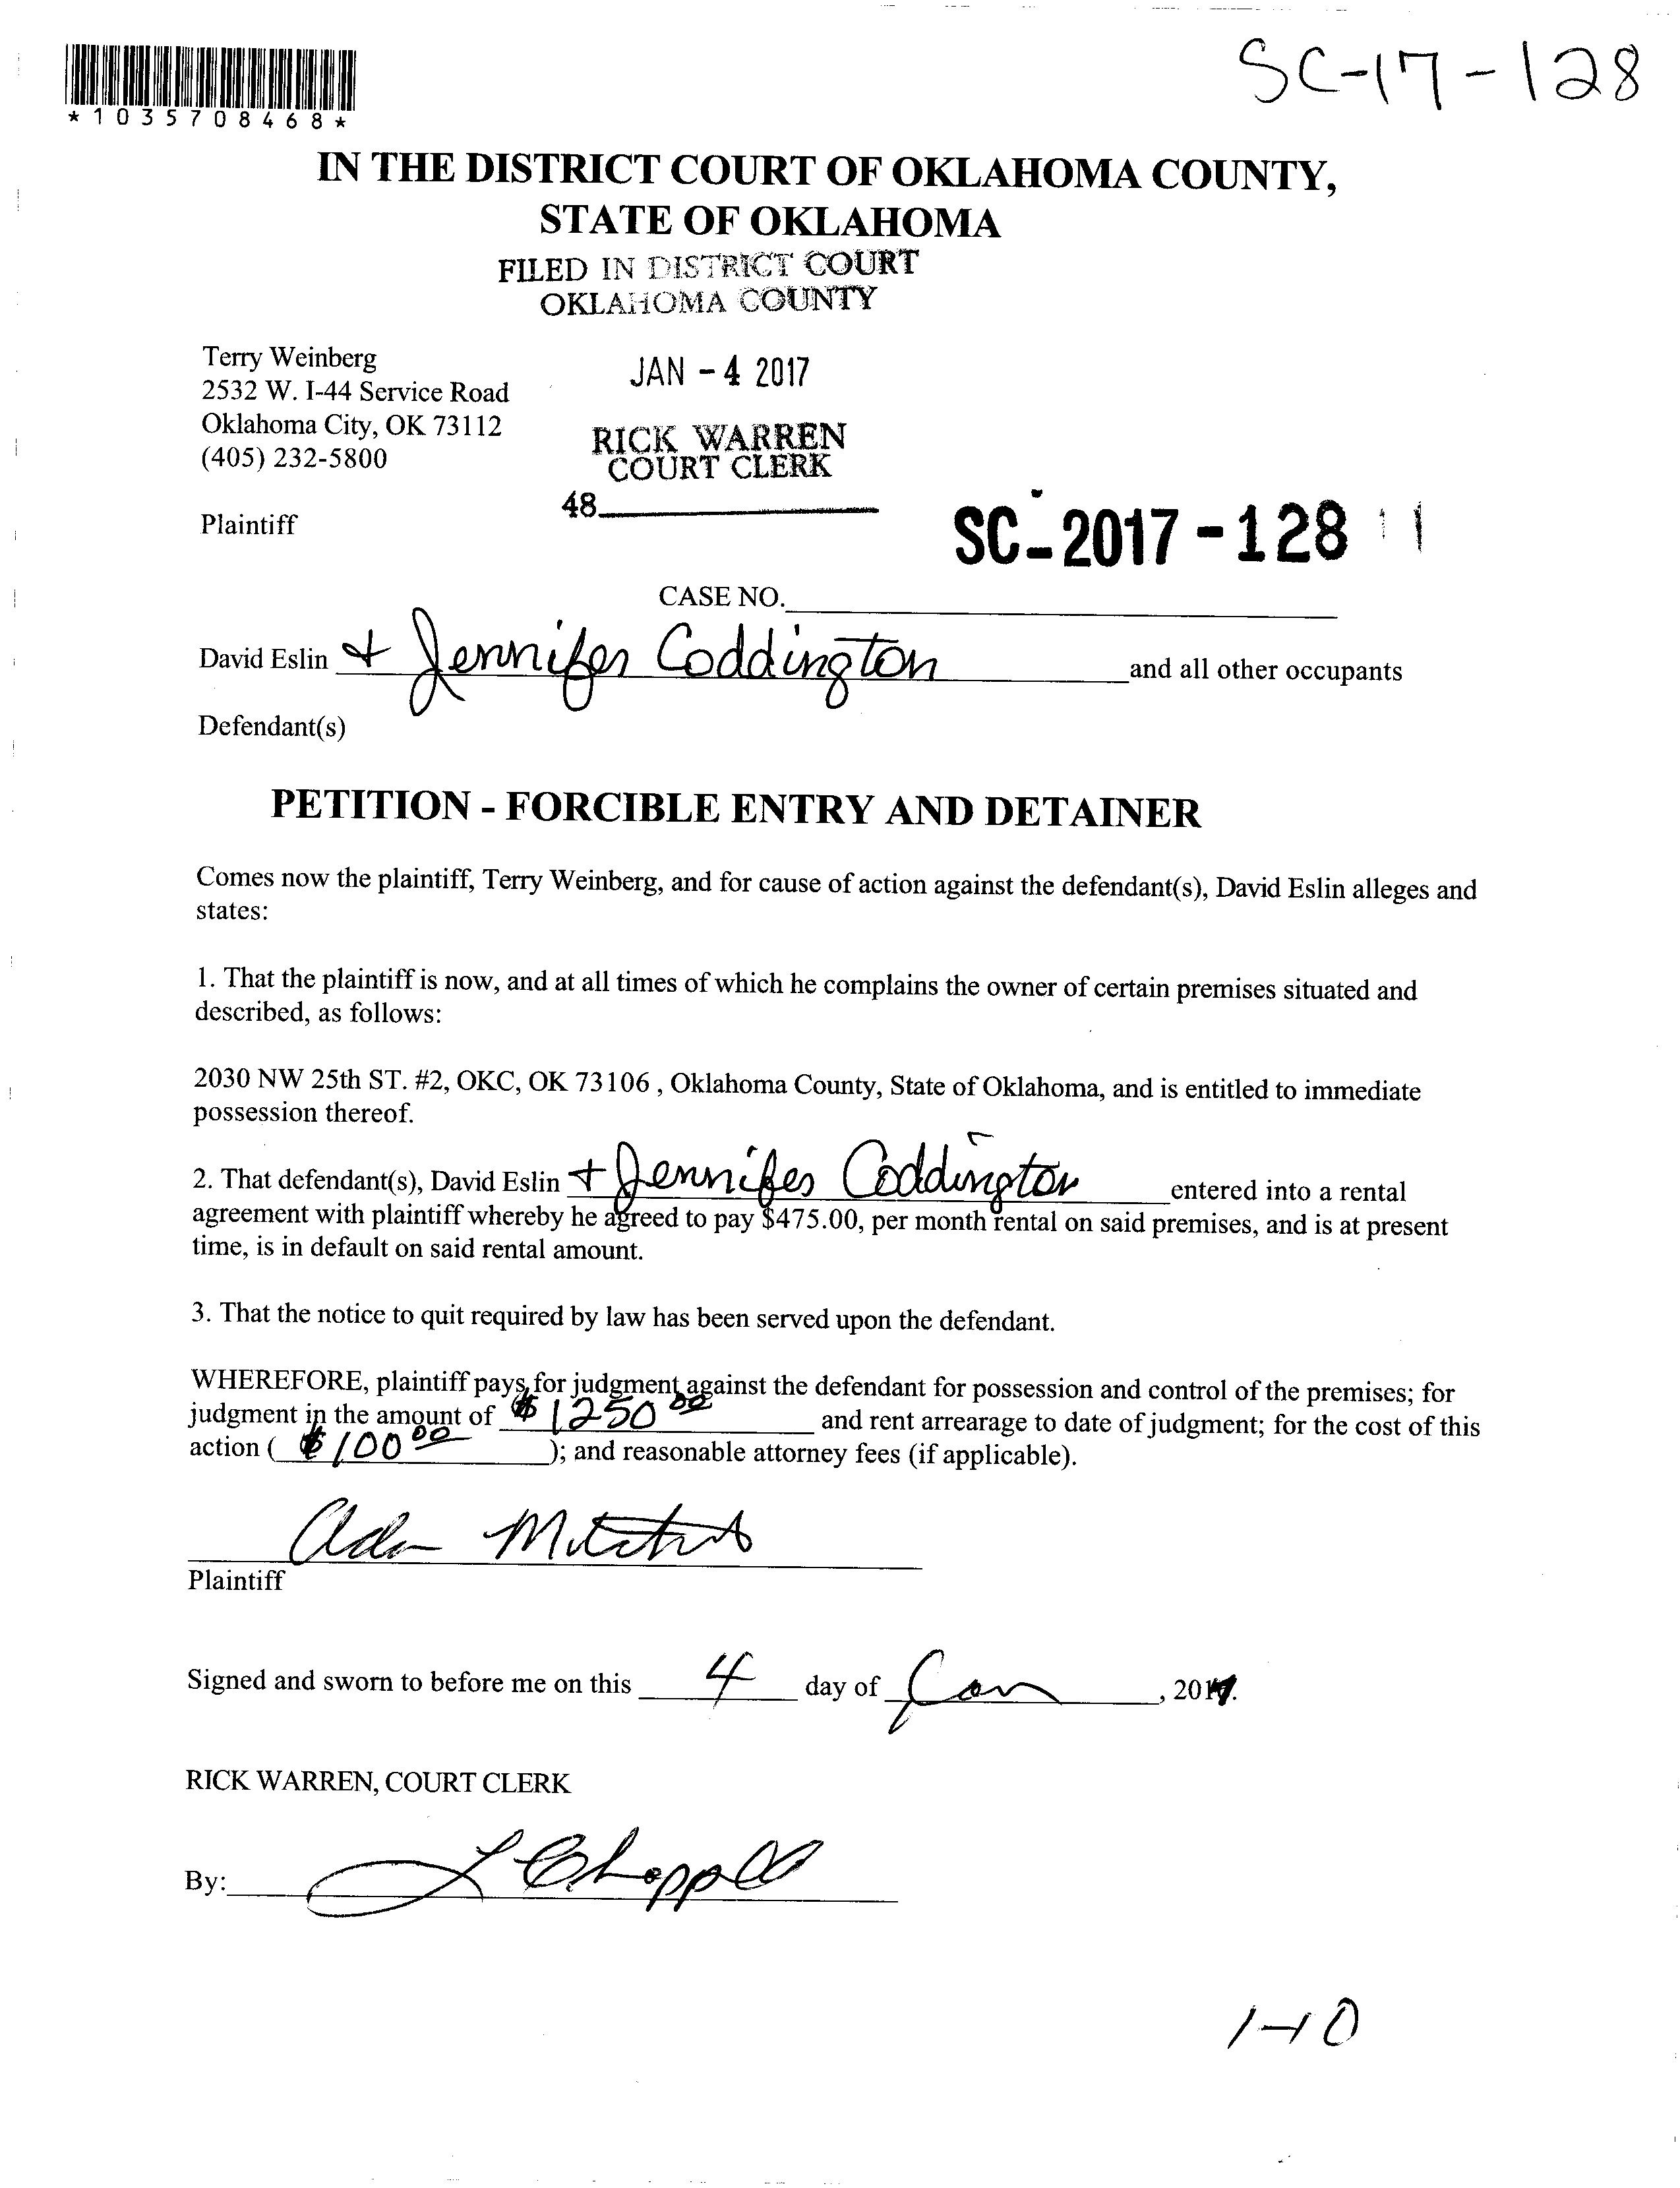 SC-17-128
*1035708468*
IN THE DISTRICT COURT OF OKLAHOMA COUNTY,
STATE OF OKLAHOMA
FILED IN DISTRICT COURT
OKLAHOMA COUNTY
Terry Weinberg
2532 W. I-44 Service Road
Oklahoma City, OK 73112
(405) 232-5800
JAN - 4 2017
RICK WARREN
COURT CLERK
48
Plaintiff
SC-2017-128
CASE NO.
David Eslin + Jennifer Coddington and all other occupants
Defendant(s)
PETITION - FORCIBLE ENTRY AND DETAINER
Comes now the plaintiff, Terry Weinberg, and for cause of action against the defendant(s), David Eslin alleges and
states:
1. That the plaintiff is now, and at all times of which he complains the owner of certain premises situated and
described, as follows:
2030 NW 25th ST. #2, OKC, OK 73106 , Oklahoma County, State of Oklahoma, and is entitled to immediate
possession thereof.
2. That defendant(s), David Eslin + Jennifer Coddington entered into a rental
agreement with plaintiff whereby he agreed to pay $475.00, per month rental on said premises, and is at present
time, is in default on said rental amount.
3. That the notice to quit required by law has been served upon the defendant.
WHEREFORE, plaintiff pays, for judgment against the defendant for possession and control of the premises; for
judgment in the amount of $1250 00 and rent arrearage to date of judgment; for the cost of this
action ( $100 00 ); and reasonable attorney fees (if applicable).
Plaintiff
Signed and sworn to before me on this 4 day of Jan, 2017.
RICK WARREN, COURT CLERK
By: Chappell
1-10